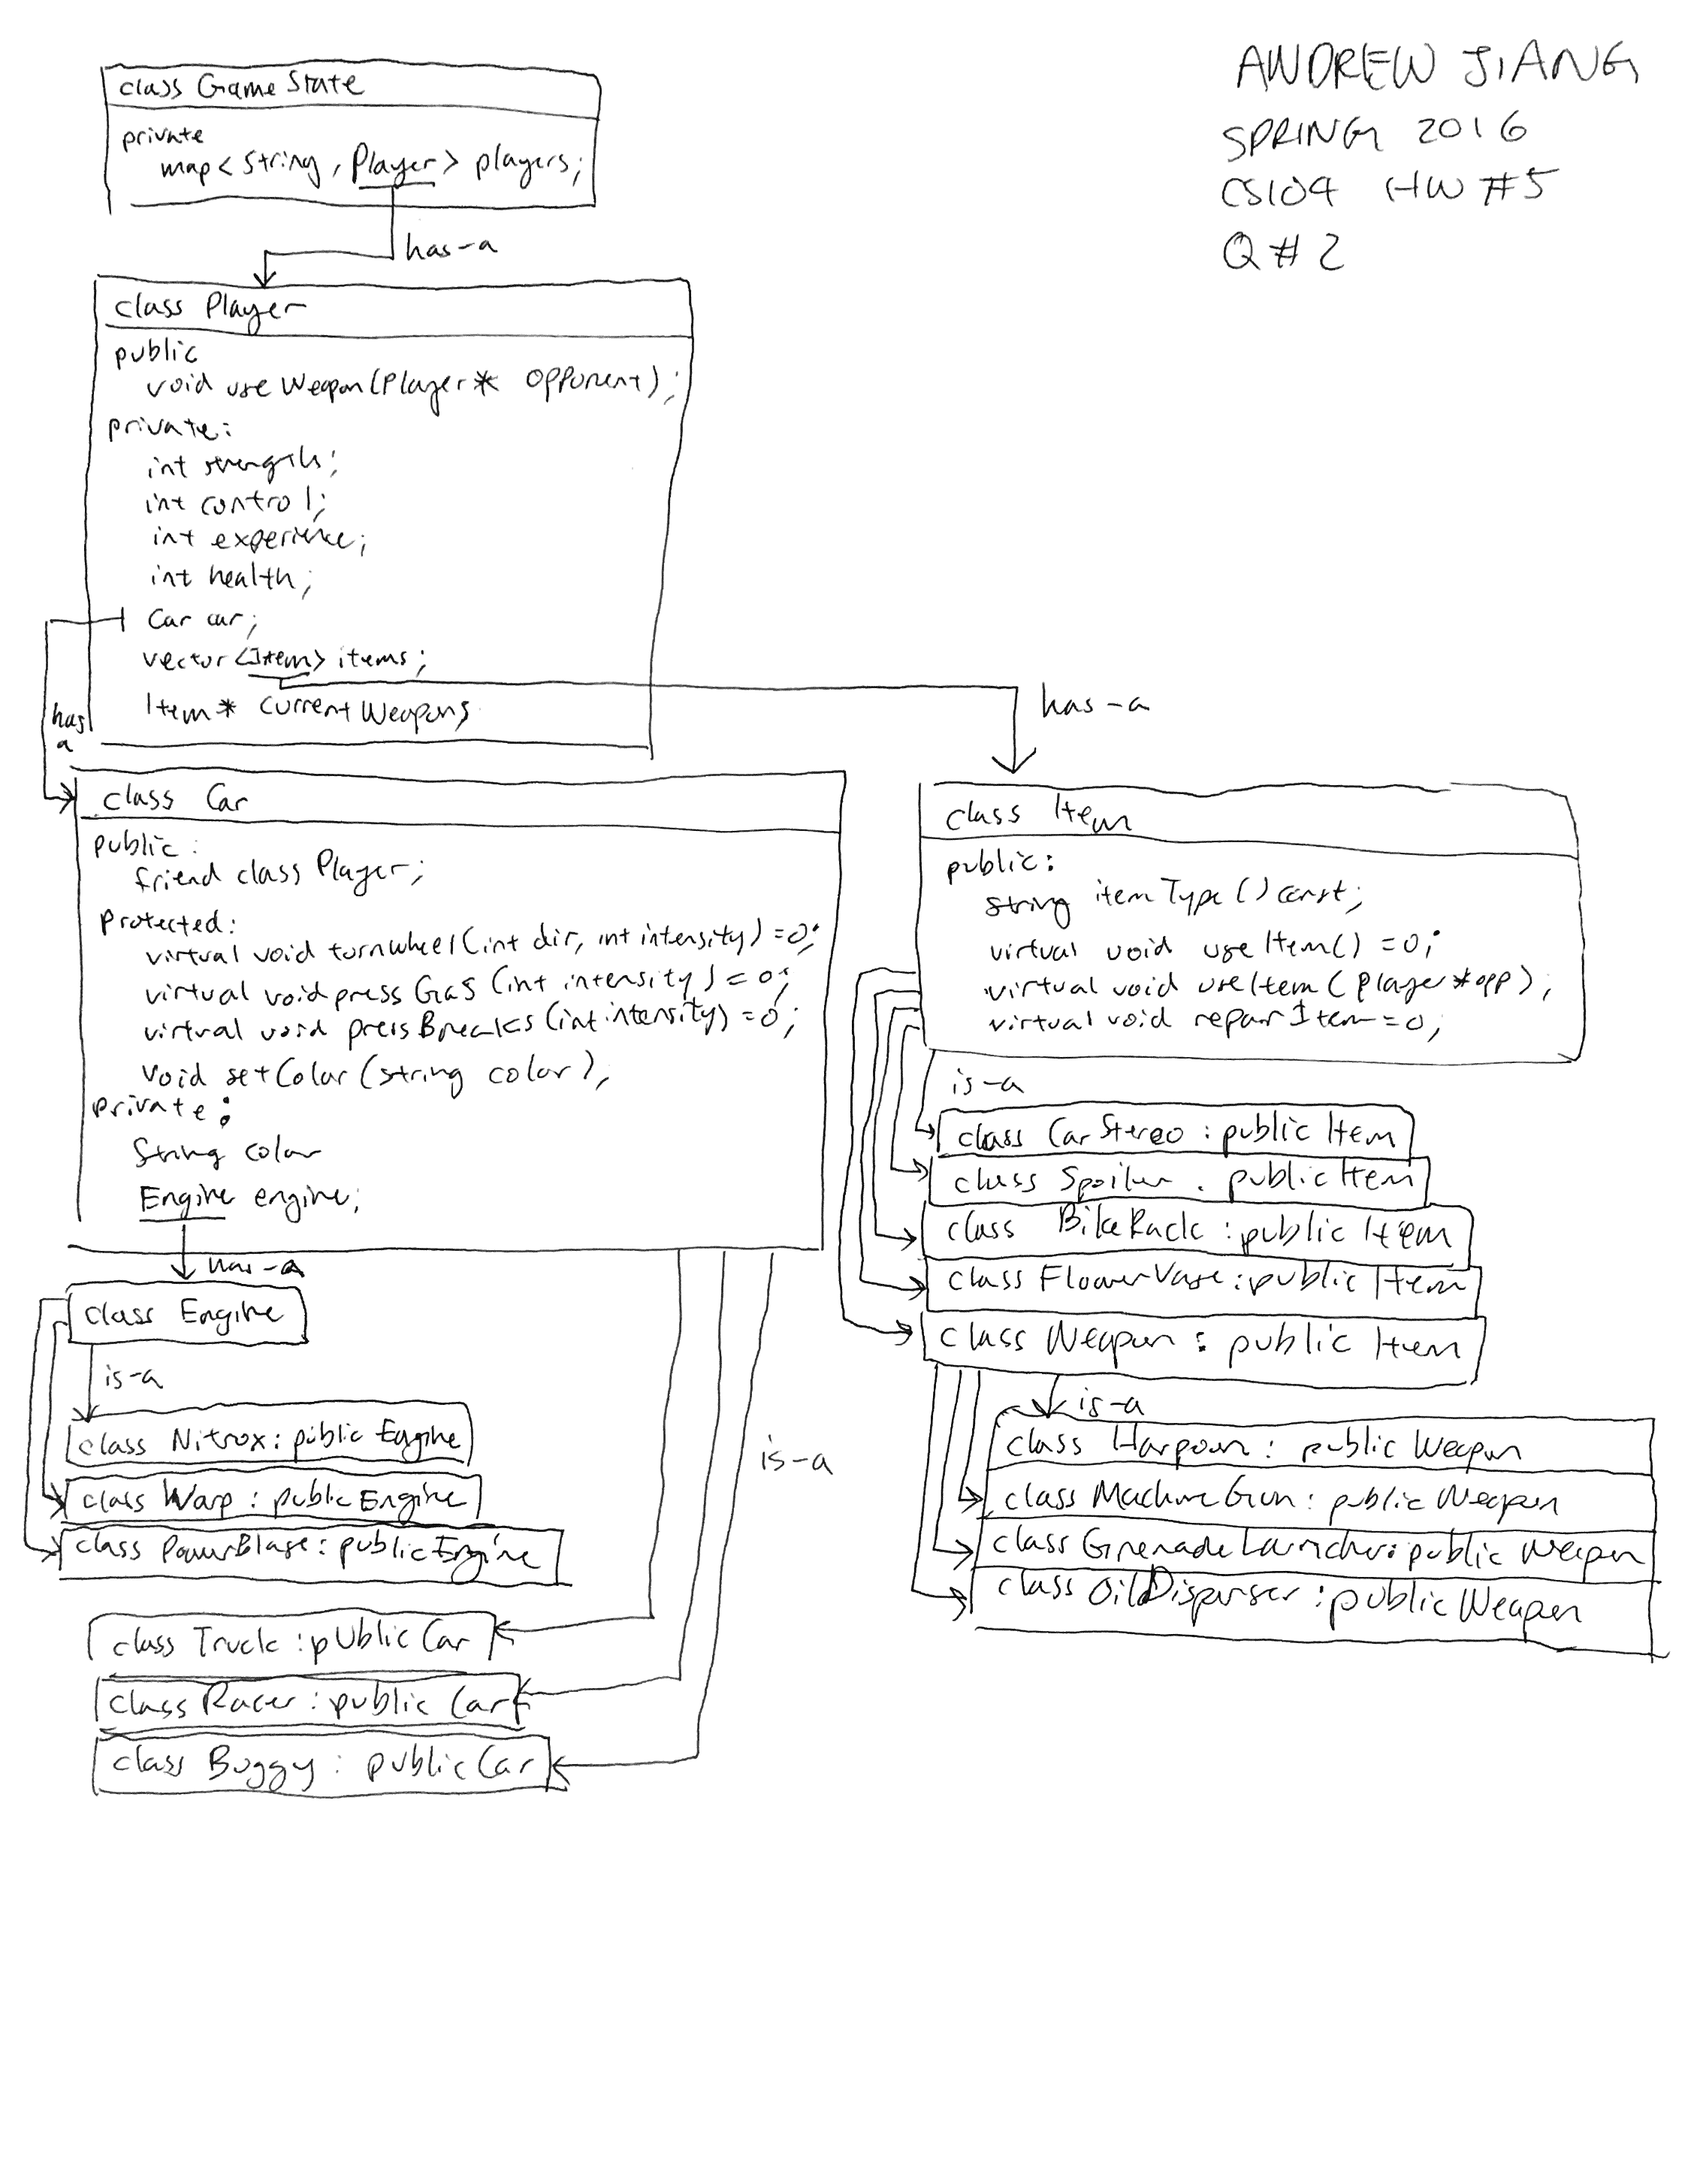 ANDREW JIANG
SPRING 2016
CS104 HW #5
Q # 2
class GameState
private
map<string, Player> players;
has-a
class Player
public
void useWeapon(Player* opponent);
private:
int strength;
int control;
int experience;
int health;
Car car;
vector<Item> items;
Item* currentWeapon;
has
a
has-a
class Car
public:
friend class Player;
protected:
virtual void turnwheel(int dir, int intensity)=0;
virtual void press Gas (int intensity) = 0;
virtual void pressBreaks(int intensity)=0;
void setColor(string color);
private:
String color
Engine engine;
has-a
class Engine
is-a
class Nitrox: public Engine
class Warp: public Engine
class PowerBlast: public Engine
is-a
class Truck: public Car
class Racer: public Car
class Buggy: public Car
class Item
public:
string itemType() const;
virtual void useItem() = 0;
virtual void useItem(player*opp);
virtual void repairItem=0;
is-a
class CarStereo: public Item
class Spoiler. public Item
class BikeRack: public Item
class FlowerVase: public Item
class Weapon: public Item
is-a
class Harpoon: public Weapon
class MachineGun: public Weapon
class GrenadeLauncher: public Weapon
class OilDisperser: public Weapon